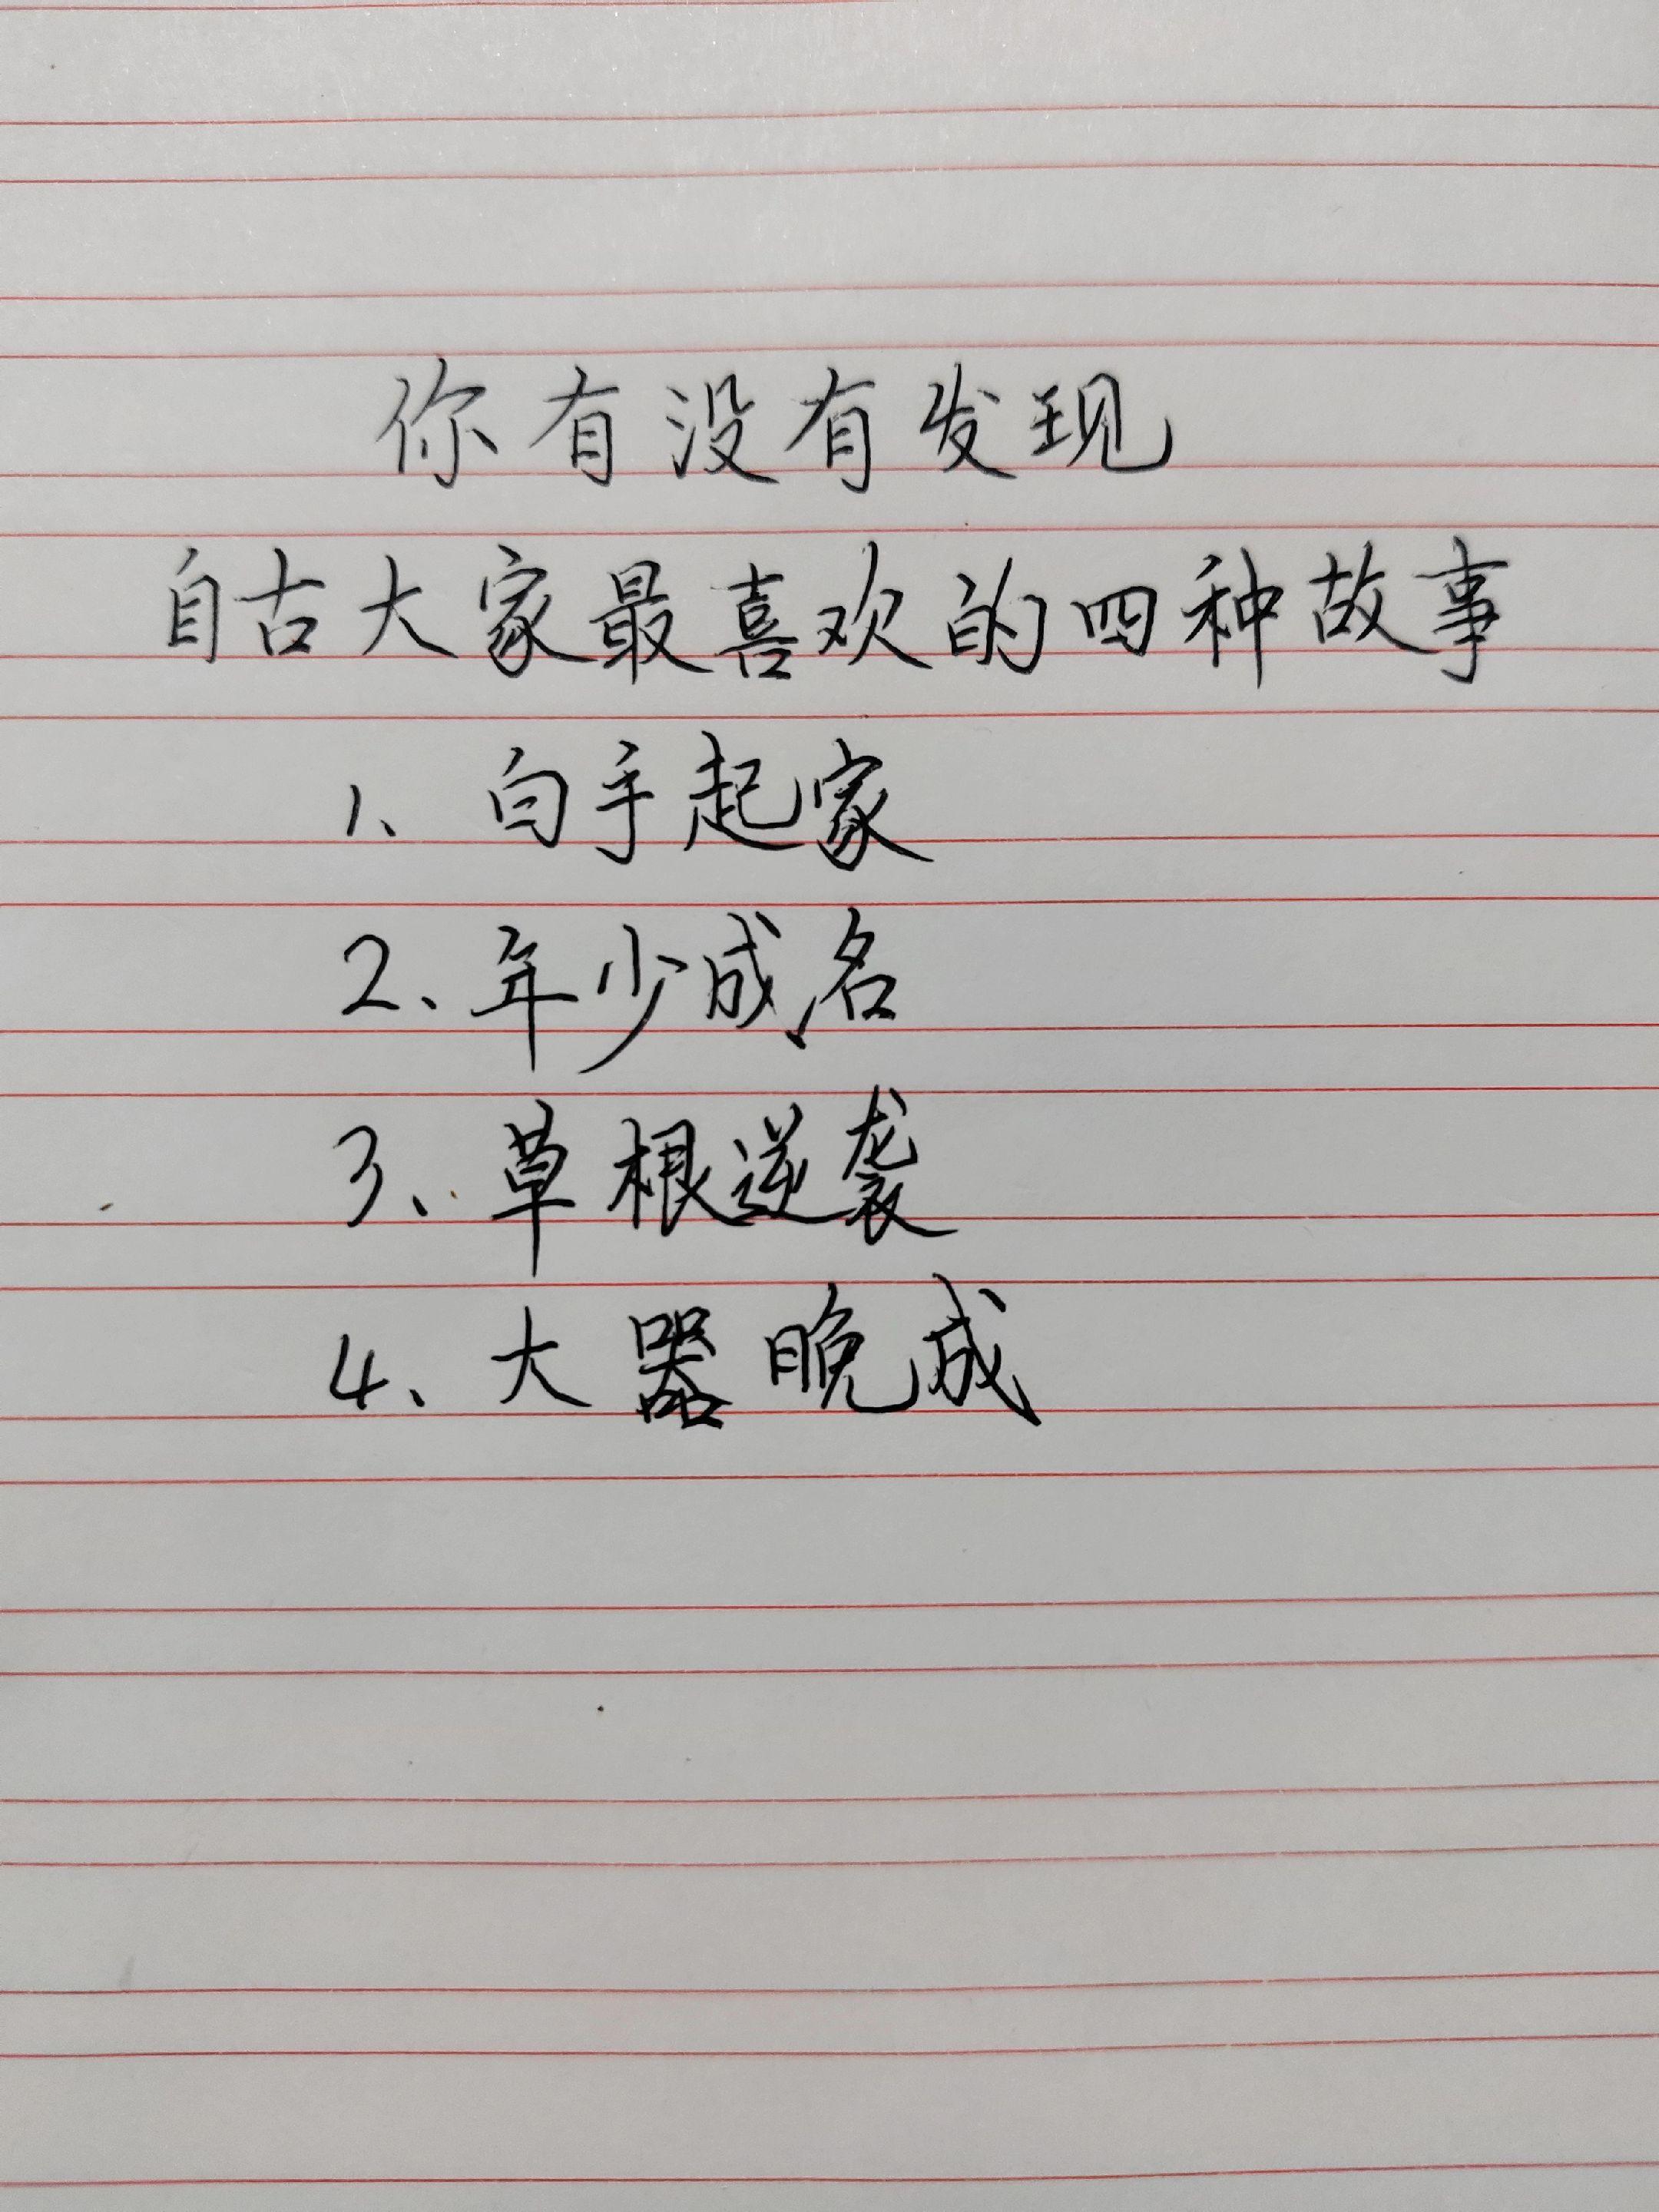 你有没有发现
自古大家最喜欢的四种故事
1、白手起家
2、年少成名
3、草根逆袭
4、大器晚成